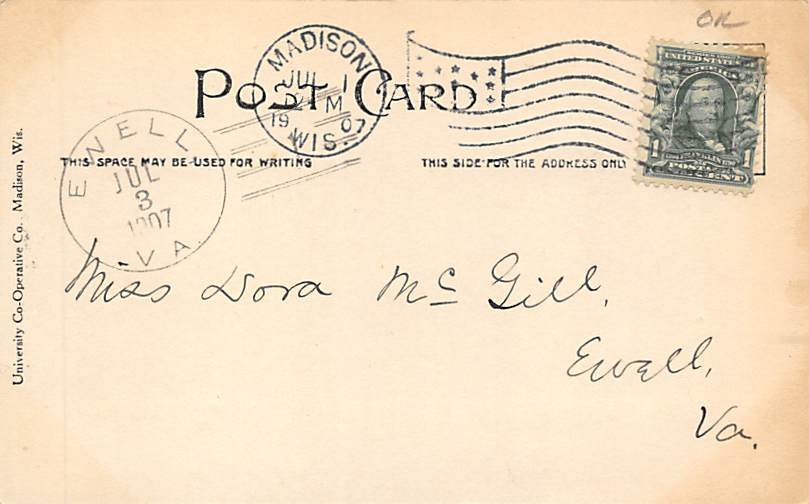 OK
MADISON
JUL 1
M
1907
WIS.
UNITED STATES
POST CARD
1 1
THIS SPACE MAY BE USED FOR WRITING
THIS SIDE FOR THE ADDRESS ONLY
ENELL
JUL
3
1907
VA.
University Co-Operative Co., Madison, Wis.
Miss Dora McGill,
Ewell,
Va.